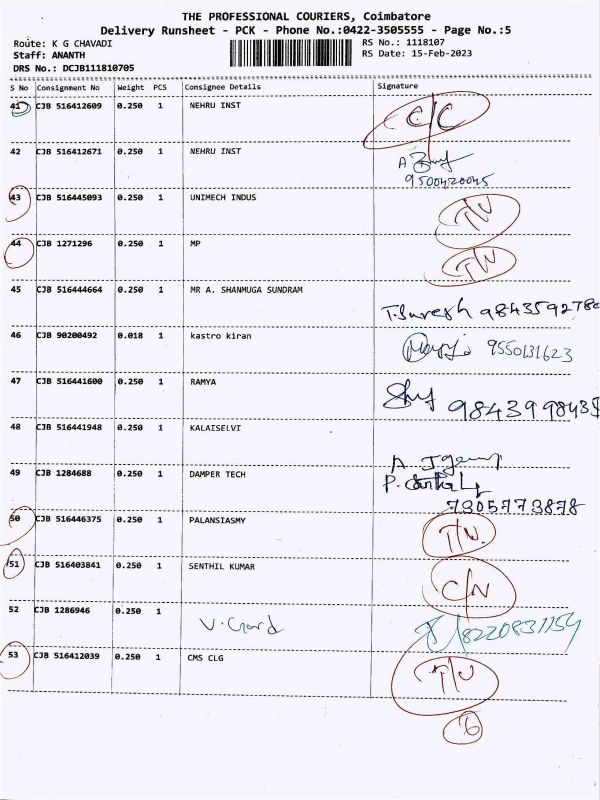 THE PROFESSIONAL COURIERS, Coimbatore
Delivery Runsheet - PCK - Phone No.:0422-3505555 - Page No.:5
Route: K G CHAVADI RS No.: 1118107
Staff: ANANTH RS Date: 15-Feb-2023
DRS No.: DCJB111810705
S No Consignment No Weight PCS Consignee Details Signature
41 CJB 516412609 0.250 1 NEHRU INST C/C
42 CJB 516412671 0.250 1 NEHRU INST A
9500420045
43 CJB 516445093 0.250 1 UNIMECH INDUS
44 CJB 1271296 0.250 1 MP
45 CJB 516444664 0.250 1 MR A. SHANMUGA SUNDRAM
T.Suresh 984359278
46 CJB 90200492 0.018 1 kastro kiran 9550131623
47 CJB 516441600 0.250 1 RAMYA
9843998435
48 CJB 516441948 0.250 1 KALAISELVI
A
49 CJB 1284688 0.250 1 DAMPER TECH P.
7305773878
50 CJB 516446375 0.250 1 PALANSIASMY
51 CJB 516403841 0.250 1 SENTHIL KUMAR C/N
52 CJB 1286946 0.250 1 V. Gard 8220831154
53 CJB 516412039 0.250 1 CMS CLG
6